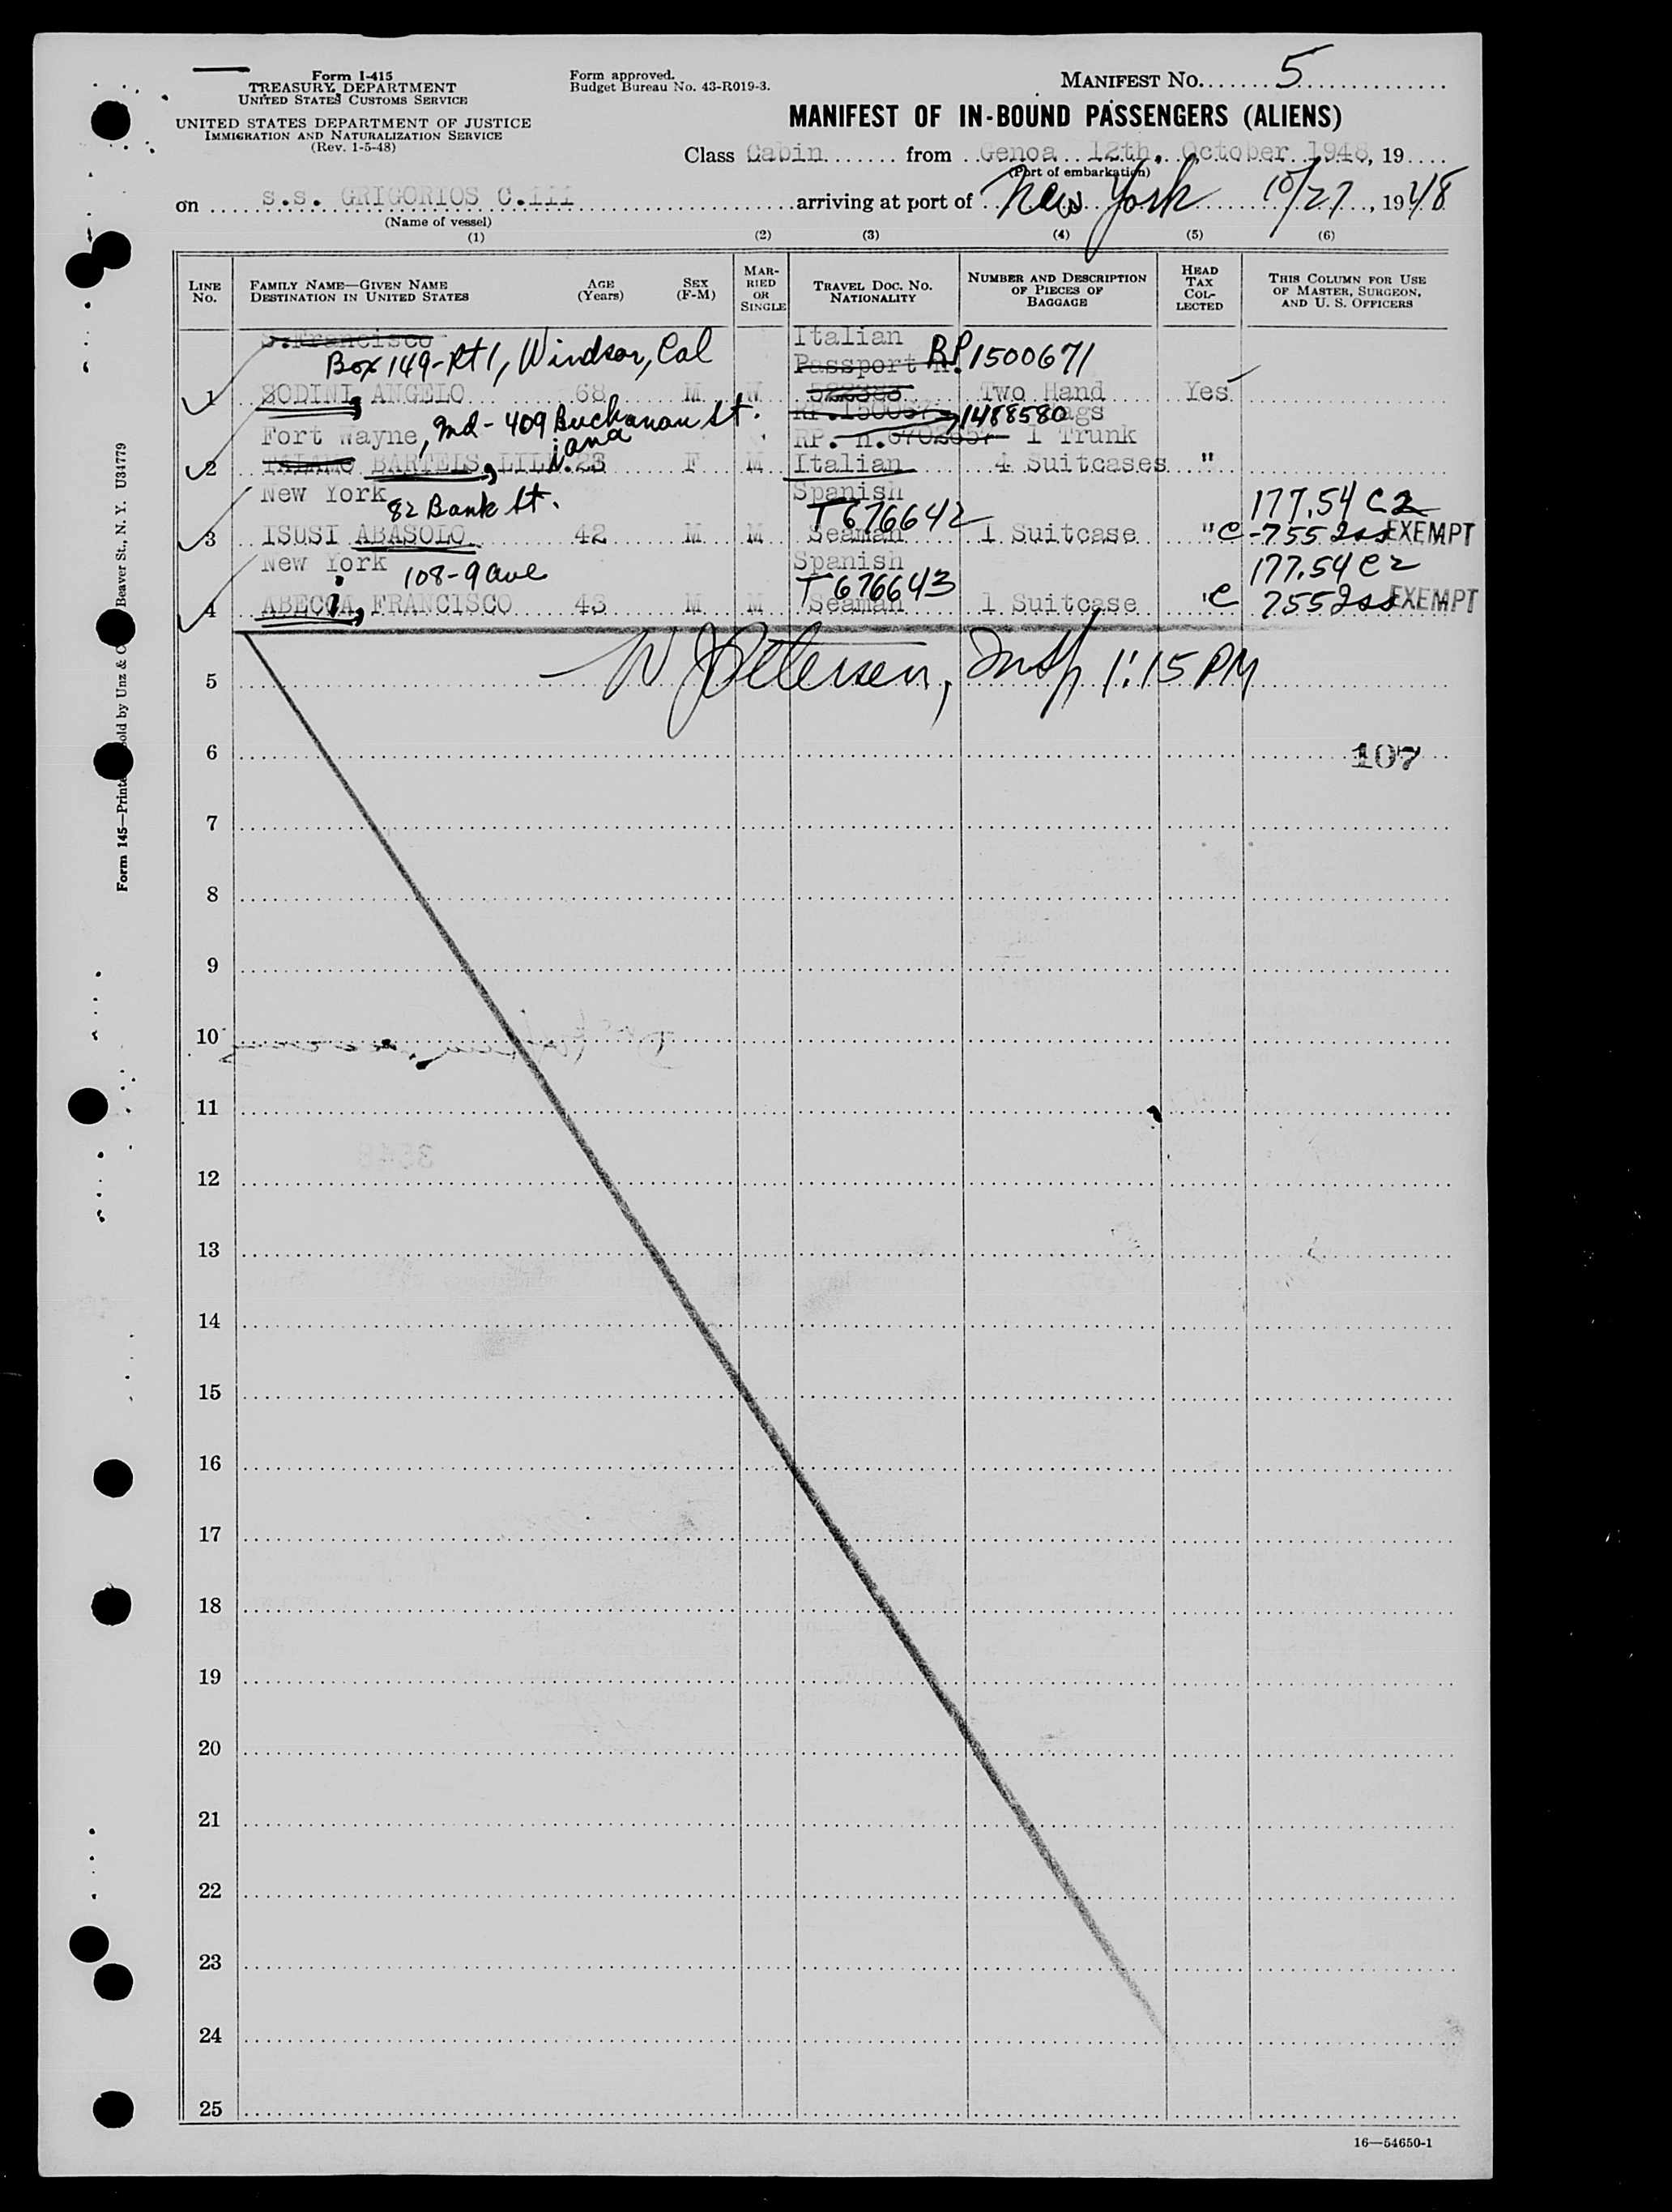 Form I-415
TREASURY DEPARTMENT
UNITED STATES CUSTOMS SERVICE
UNITED STATES DEPARTMENT OF JUSTICE
IMMIGRATION AND NATURALIZATION SERVICE
(Rev. 1-5-48)
Form approved.
Budget Bureau No. 43-R019-3.
MANIFEST NO. 5
MANIFEST OF IN-BOUND PASSENGERS (ALIENS)
Class Cabin from Genoa 12th. October 1948, 19
(Port of embarkation)
on s.s. GRIGORIOS C.III arriving at port of New York 10/27, 1948
(Name of vessel)
(1) (2) (3) (4) (5) (6)
LINE No. FAMILY NAME—GIVEN NAME DESTINATION IN UNITED STATES AGE (Years) SEX (F-M) MARRIED OR SINGLE TRAVEL DOC. NO. NATIONALITY NUMBER AND DESCRIPTION OF PIECES OF BAGGAGE HEAD TAX COLLECTED THIS COLUMN FOR USE OF MASTER, SURGEON, AND U. S. OFFICERS
S.Francisco Italian
Box 149-Rt 1, Windsor, Cal Passport N. RP. 1500671
1 SODINI, ANGELO 68 M W Two Hand Yes
1488580 ags
Fort Wayne, Ind - 409 Buchanan St. RP. n. 1 Trunk
iana
2 TALAMO BARTELS, LIL 23 F M Italian 4 Suitcases "
New York 82 Bank St. Spanish 177.54 C2
T 676642
3 ISUSI ABASOLO 42 M M Seaman 1 Suitcase " C - 755 EXEMPT
New York 108-9 ave Spanish 177.54 C2
T 676643
4 ABECCIA, FRANCISCO 43 M M Seaman 1 Suitcase " C 755 EXEMPT
W J Petersen, Insp 1:15 PM
5
6 107
7
8
9
10
11
12
13
14
15
16
17
18
19
20
21
22
23
24
25
16—54650-1
Form 145—Printe old by Unz & C Beaver St., N. Y. U34779